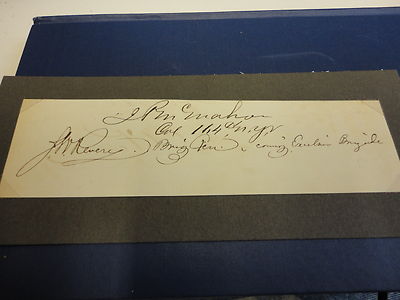 J P McMahon
Col 164th N.Y.V
J W Revere. Brig Gen. comdg Excelsior Brigade